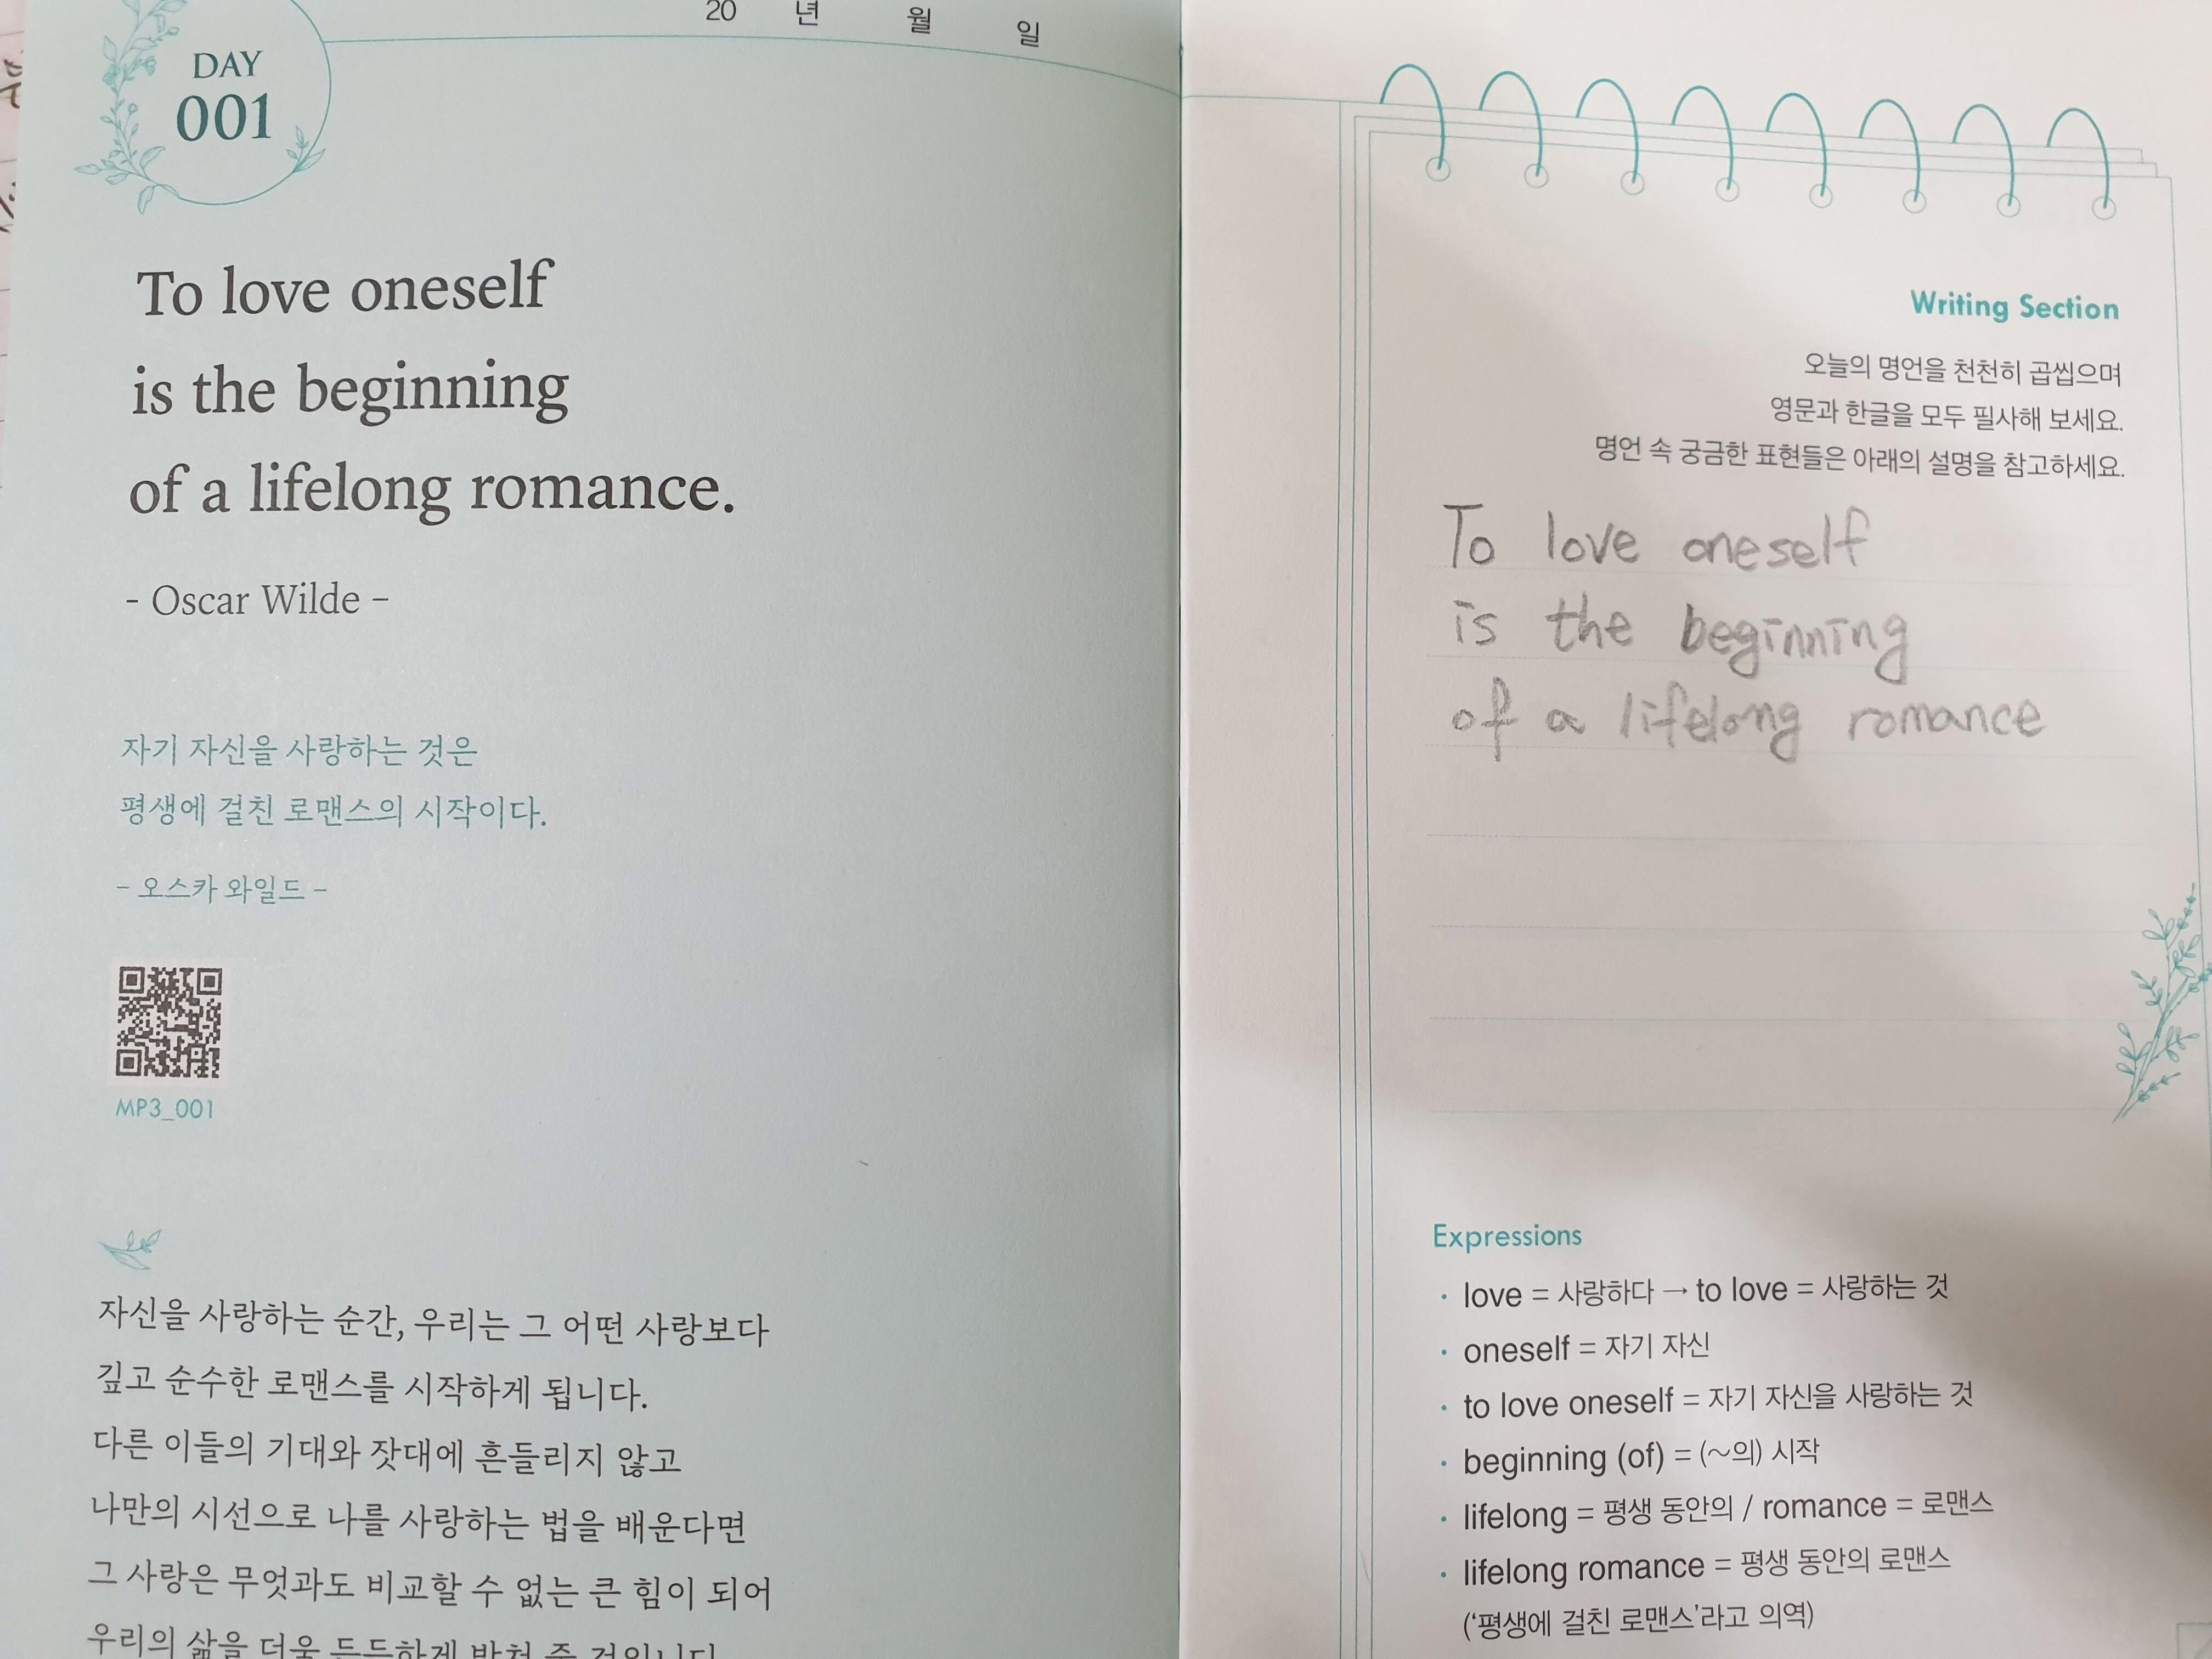 DAY
001
20 년 월 일
To love oneself
is the beginning
of a lifelong romance.
- Oscar Wilde –
자기 자신을 사랑하는 것은
평생에 걸친 로맨스의 시작이다.
– 오스카 와일드 –
MP3_001
자신을 사랑하는 순간, 우리는 그 어떤 사랑보다
깊고 순수한 로맨스를 시작하게 됩니다.
다른 이들의 기대와 잣대에 흔들리지 않고
나만의 시선으로 나를 사랑하는 법을 배운다면
그 사랑은 무엇과도 비교할 수 없는 큰 힘이 되어
우리의 삶을 더욱 든든하게 받쳐 줄 것입니다
Writing Section
오늘의 명언을 천천히 곱씹으며
영문과 한글을 모두 필사해 보세요.
명언 속 궁금한 표현들은 아래의 설명을 참고하세요.
To love oneself
is the beginning
of a lifelong romance
Expressions
· love = 사랑하다 → to love = 사랑하는 것
· oneself = 자기 자신
· to love oneself = 자기 자신을 사랑하는 것
· beginning (of) = (~의) 시작
· lifelong = 평생 동안의 / romance = 로맨스
· lifelong romance = 평생 동안의 로맨스
(‘평생에 걸친 로맨스’라고 의역)